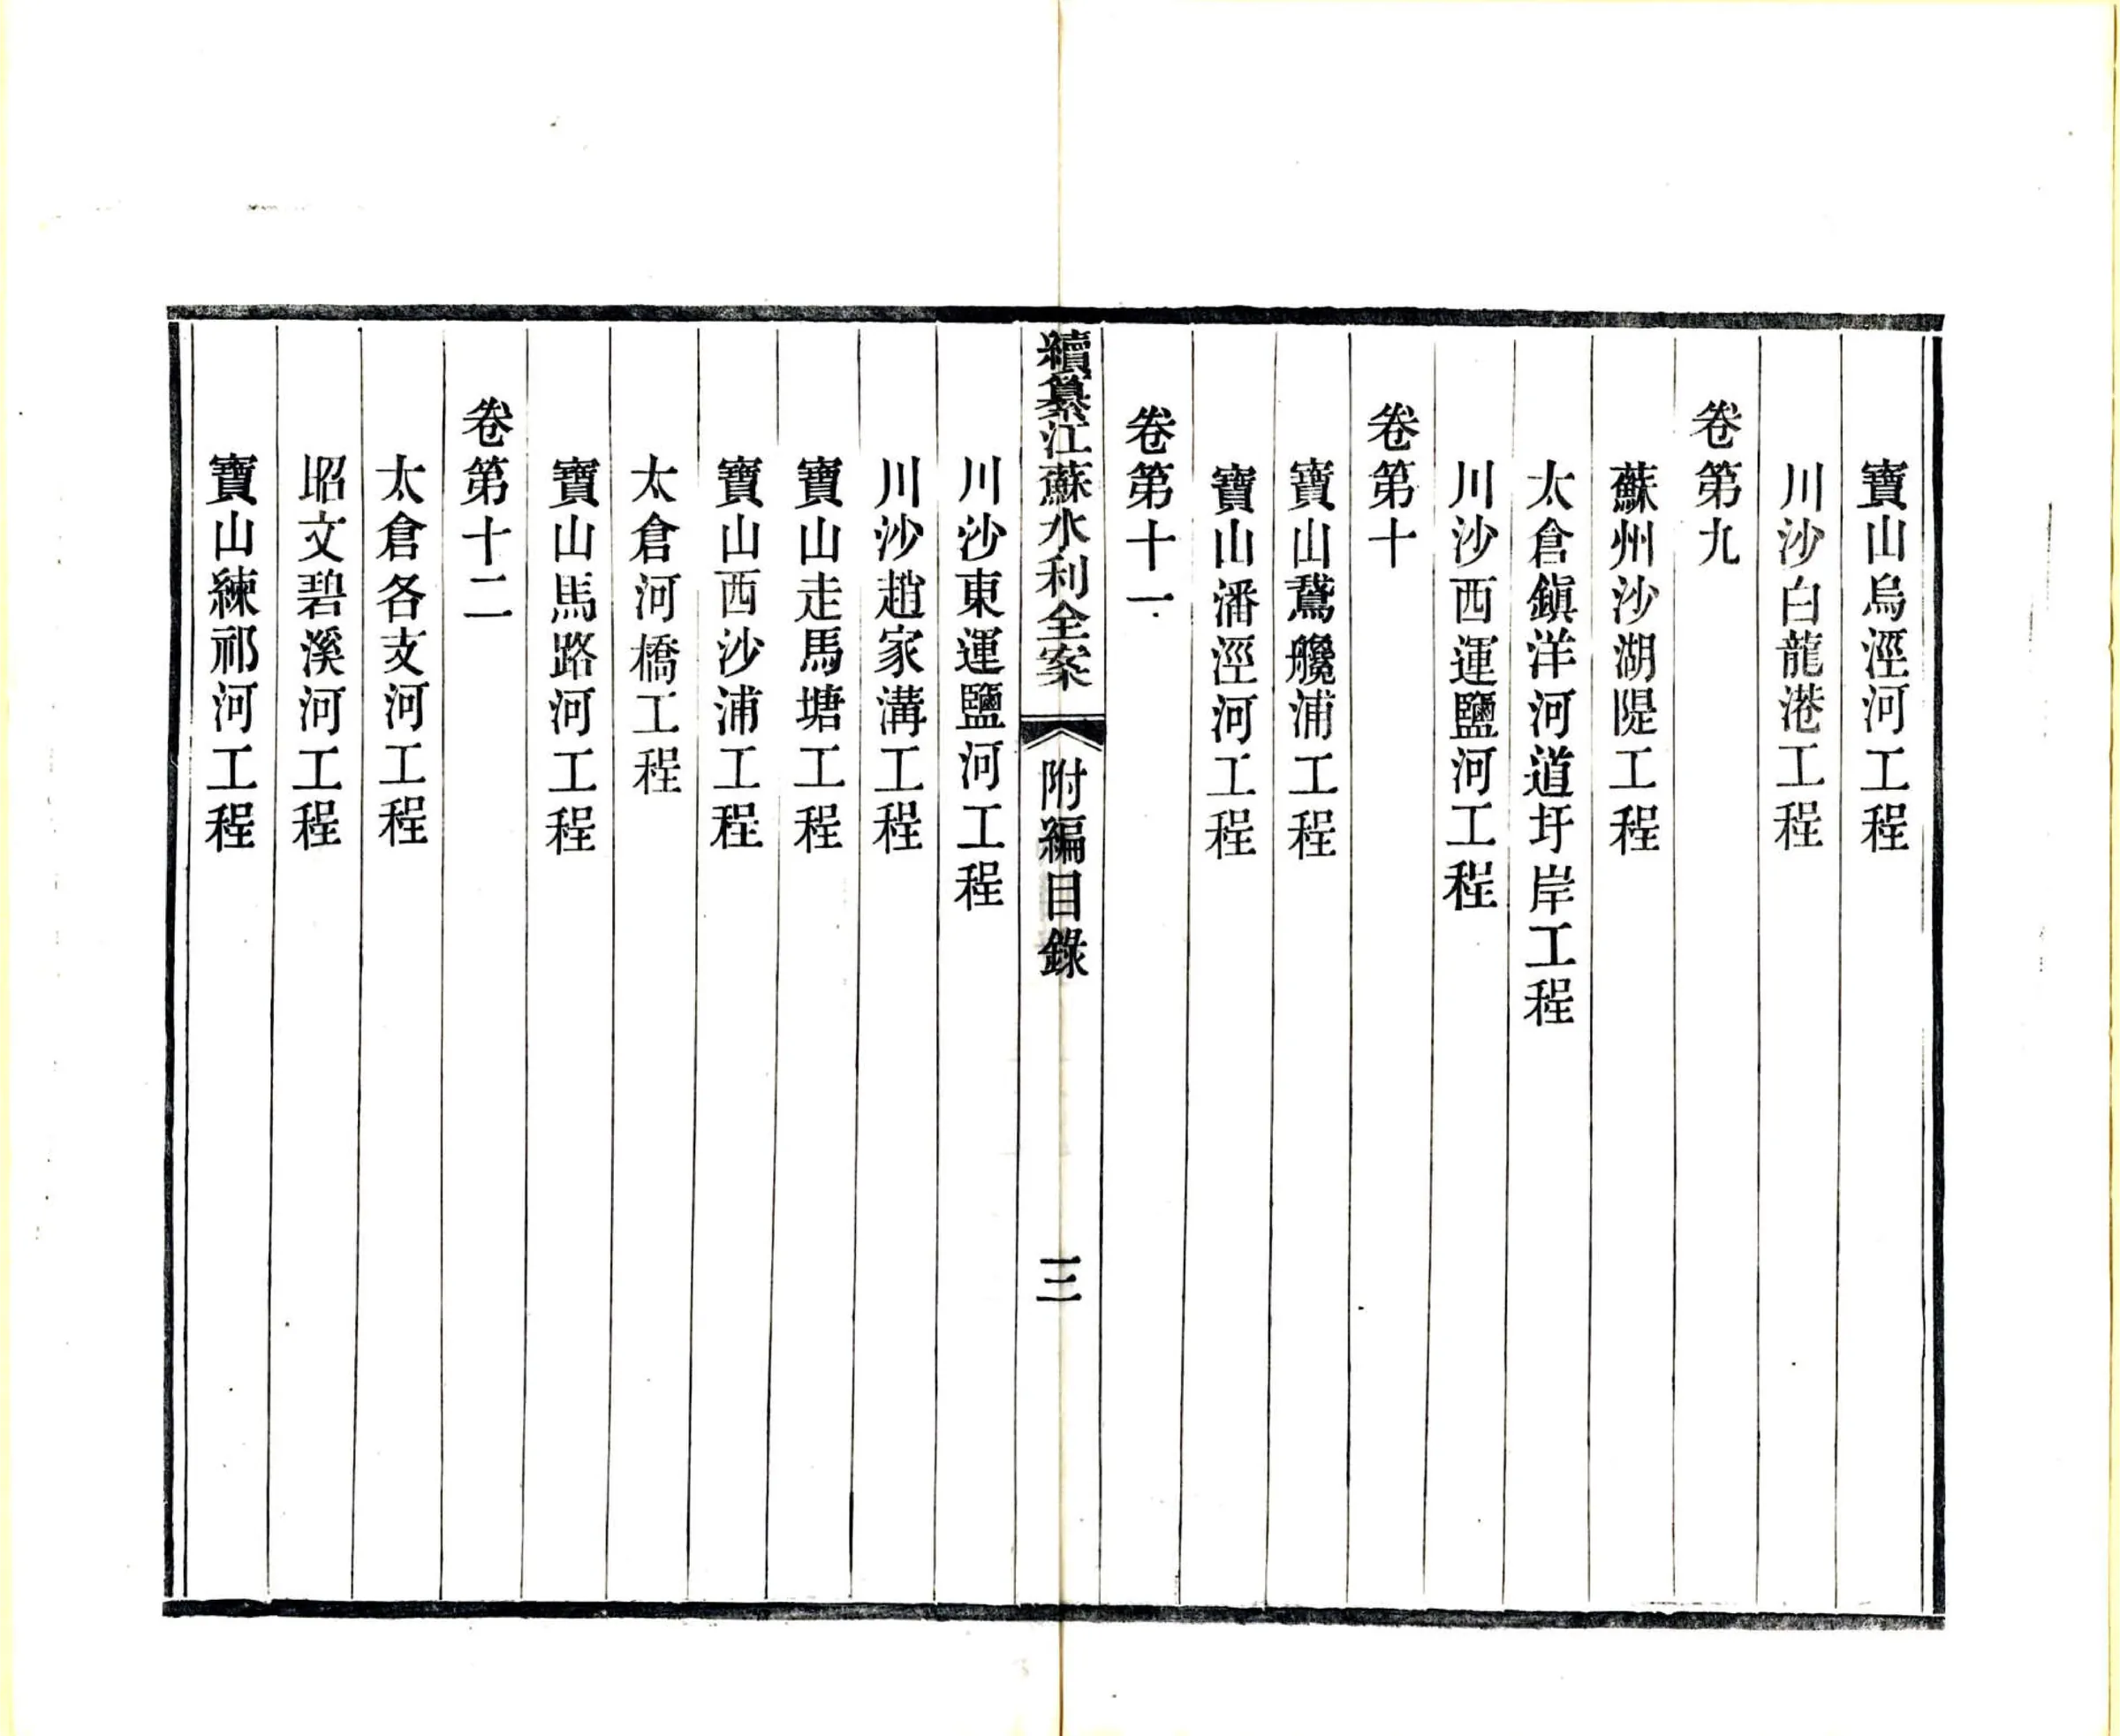 寶山烏涇河工程
川沙白龍港工程
卷第九
蘇州沙湖隄工程
太倉鎭洋河道圩岸工程
川沙西運鹽河工程
卷第十
寶山鵞艬浦工程
寶山潘涇河工程
卷第十一
續纂江蘇水利全案
附編目錄
三
川沙東運鹽河工程
川沙趙家溝工程
寶山走馬塘工程
寶山西沙浦工程
太倉河橋工程
寶山馬路河工程
卷第十二
太倉各支河工程
昭文碧溪河工程
寶山練祁河工程